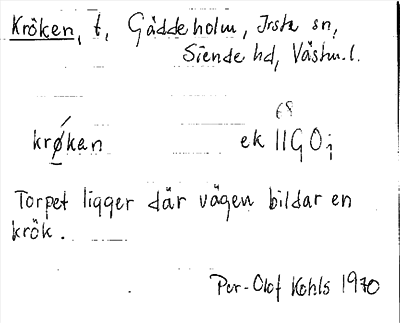 Kröken, t, Gäddeholm, Irsta sn,
Siende hd, Västm.l.
68
krø̄́kan ek 11G0i
Torpet ligger där vägen bildar en
krök.
Per-Olof Kohls 1970